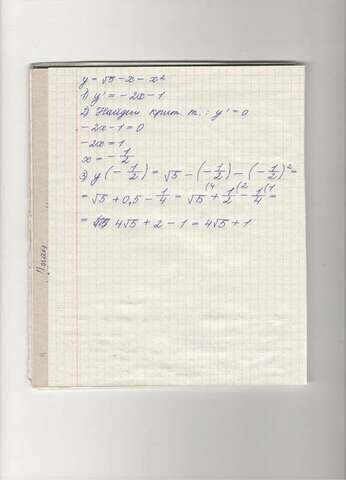 y = √5 - x - x²
1) y' = -2x - 1
2) Найдем крит. т.: y' = 0
-2x - 1 = 0
-2x = 1
x = -1/2
3) y(-1/2) = √5 - (-1/2) - (-1/2)² =
= √5 + 0,5 - 1/4 = √5 (4 + 1/2 (2 - 1/4 (1 =
= 4√5 + 2 - 1 = 4√5 + 1